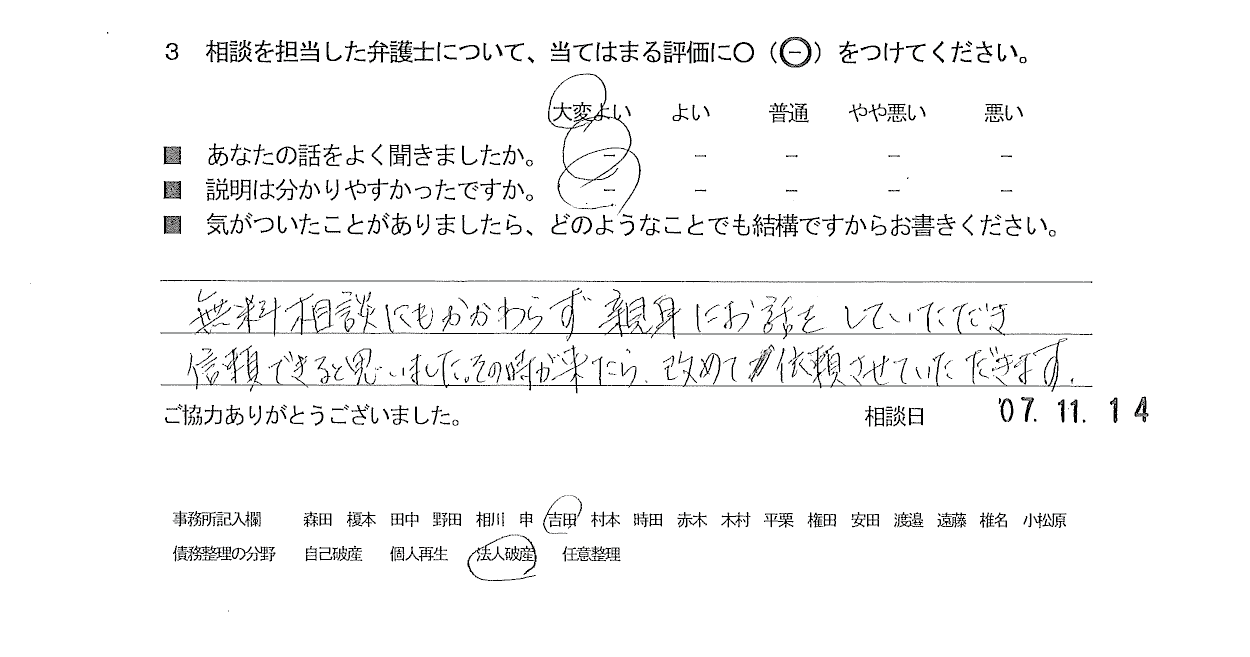 3 相談を担当した弁護士について、当てはまる評価に○(㊀)をつけてください。
大変よい よい 普通 やや悪い 悪い
■ あなたの話をよく聞きましたか。 － － － － －
■ 説明は分かりやすかったですか。 － － － － －
■ 気がついたことがありましたら、どのようなことでも結構ですからお書きください。
無料相談にもかかわらず親身にお話をしていただき
信頼できると思いました。その時が来たら、改めて依頼させていただきます。
ご協力ありがとうございました。 相談日 '07. 11. 14
事務所記入欄 森田 榎本 田中 野田 相川 申 吉田 村本 時田 赤木 木村 平栗 権田 安田 渡邉 遠藤 椎名 小松原
債務整理の分野 自己破産 個人再生 法人破産 任意整理